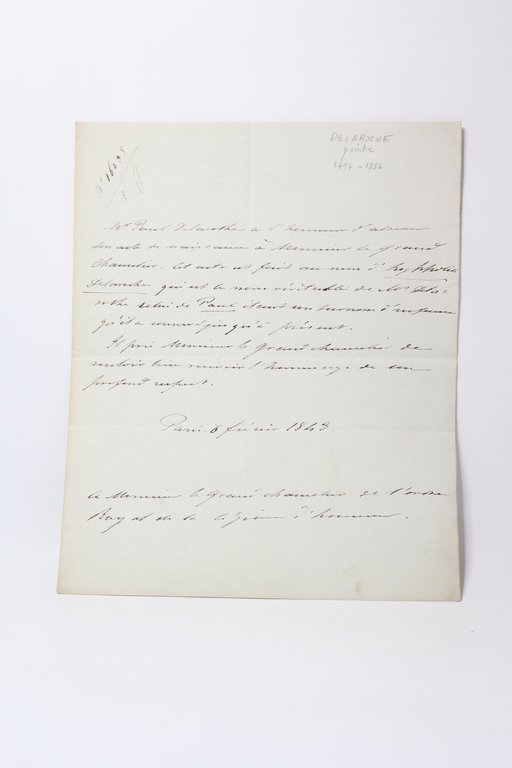 DELAROCHE
peintre
1797 - 1856
Mr Paul Delaroche a l'honneur d'adresser
son acte de naissance à Monsieur le Grand
Chancelier. Cet acte est fait au nom d'Hyppolite
Delaroche, qui est le nom véritable de Mr Dela-
roche celui de Paul étant un surnom d'enfance
qu'il a conservé jusqu'à présent.
Il prie Monsieur le Grand chancelier de
vouloir bien recevoir l'hommage de son
profond respect.
Paris 8 février 1843.
A Monsieur le Grand chancelier de l'ordre
Royal de la légion d'honneur.